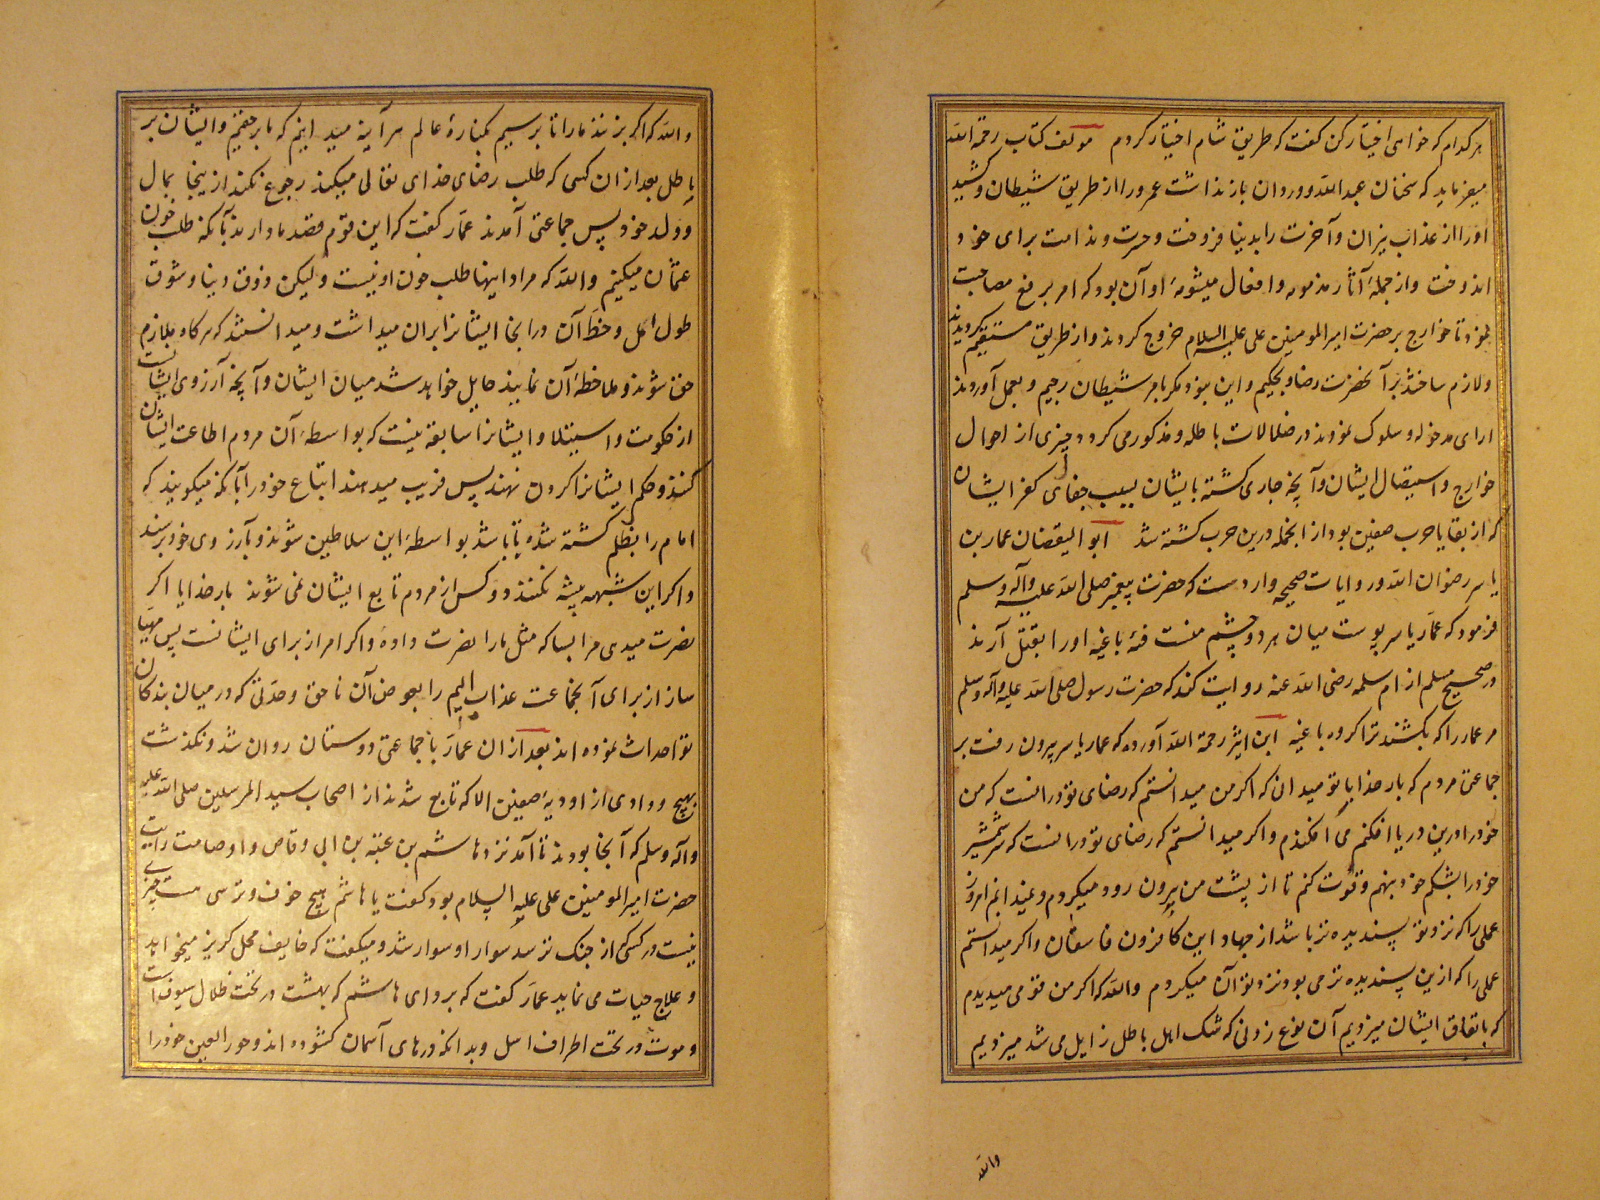 هر کدام که خواهی اختیار کن گفت که طریق شام اختیار کردم مولف کتاب رحمة الله
میفرماید که سخنان عبد الله و وردان باز نداشت عمرو را از طریق شیطان و نکشید
او را از عذاب نیران و آخرت را بدنیا فروخت و حسرت و ندامت برای خود
اندوخت و از جملهٔ آثار مذمومه و افعال میشومهٔ او آن بود که امر برفع مصاحف
نمود تا خوارج بر حضرت امیر المومنین علی علیه السلام خروج کردند و از طریق مستقیم گردیدند
و لازم ساختند بر آنحضرت رضا بتحکیم و این نبود مگر بامر شیطان رجیم و بعمل آوردند
ارای مدخوله و سلوک نمودند در ضلالات باطله و مذکور می گردد چیزی از احوال
خوارج و استیصال ایشان و آنچه جاری گشته بایشان بسبب جفای کفر ایشان
که از بقایا حرب صفین بود از انجمله درین حرب کشته شد ابو الیقضان عمار بن
یاسر رضوان الله در روایات صحیحه وارد ست که حضرت پیغمبر صلی الله علیه وآله وسلم
فرمود که عمار یاسر پوست میان هر دو چشم منست فئهٔ باغیه او را بقتل آرند
در صحیح مسلم از ام سلمه رضی الله عنه روایت کند که حضرت رسول صلی الله علیه وآله وسلم
مر عمار را که بکشند ترا گروه باغیه ابن اثیر رحمة الله آورده که عمار یاسر بیرون رفت بر
جماعتی مردم که بار خدایا تو میدانی که اگر من میدانستم که رضای تو در انست که من
خود را درین دریا افکنم می افکندم و اگر میدانستم که رضای تو در انست که سر شمشیر
خود را بشکم خود بنهم و قوت کنم تا از پشت من بیرون رود میکردم و نمیدانم امروز
عملی را که نزد تو پسندیده تر باشد از جهاد این کافرون فاسقان و اگر میدانستم
عملی را که ازین پسندیده تر می بود نزد تو آن میکردم والله که اگر من قومی میدیدم
که باتفاق ایشان میزدیم آن نوع زدنی که شک اهل باطل زایل می شد میزدیم
والله
والله که اگر بزنند ما را تا برسیم بکنارهٔ عالم هر آینه میدانیم که ما بر حقیم و ایشان بر
باطل بعد از ان کسی که طلب رضای خدای تعالی میکند رجوع نکند از ینجا بمال
و ولد خود پس جماعتی آمدند عمار گفت که این قوم قصد ما دارند بآنکه طلب خون
عثمان میکنیم والله که مراد اینها طلب خون او نیست ولیکن ذوق دنیا و شوق
طول امل و حظ آن در انجا ایشانرا بران میداشت و میدانستند که هر گاه ملازم
حق شوند و ملاحظهٔ آن نمایند حایل خواهد شد میان ایشان و آنچه آرزوی ایشانست
از حکومت و استیلا و ایشانرا سابقه نیست که بواسطهٔ آن مردم اطاعت ایشان
کنند و حکم ایشانرا گردن نهند پس فریب میدهند اتباع خود را بآنکه میگویند که
امام را بظلم کشته شده تا باشد بواسطهٔ این سلاطین شوند و بآرزوی خود برسند
و اگر این شبهه پیشه نکنند دو کس از مردم تابع ایشان نمی شوند بار خدایا اگر
نصرت میدی مر ما بسا که مثل ما را نصرت داده و اگر امر از برای ایشانست پس مهیا
ساز از برای آنجماعت عذاب الیم را بعوض آن ناحق وحدتی که در میان بندکان
تو احداث نموده اند بعد از ان عمار با جماعتی دوستان روان شد و نگذشت
بهیچ وادی از اودیهٔ صفین الا که تابع شدند از اصحاب سید المرسلین صلی الله علیه
وآله وسلم که آنجا بودند تا آمد نزد هاشم بن عتبه بن ابی وقاص و او صاحب رایت
حضرت امیر المومنین علی علیه السلام بود گفت یا هاشم هیچ خوف و ترسی هست چیزی
نیست در کسی که از جنک ترسد سوار او سوار شد و میگفت که خایف محل گریز میخواهد
و علاج حیات می نماید عمار گفت که برو ای هاشم که بهشت در تحت ظلال سیوف است
و موت در تحت اطراف اسل و بدانکه درهای آسمان گشوده اند و حور العین خود را